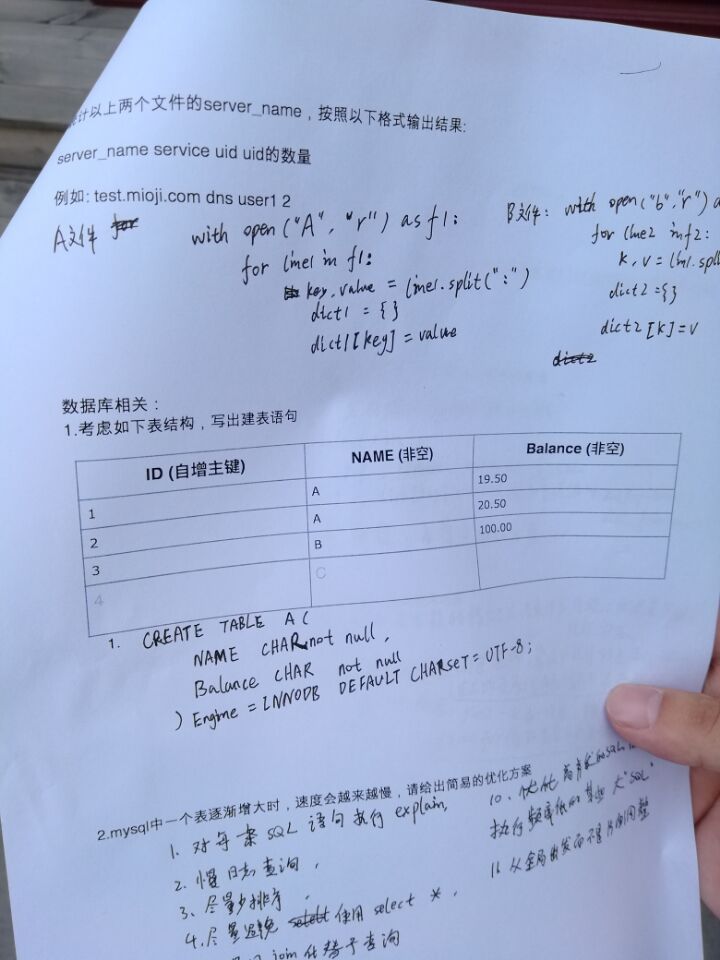 计以上两个文件的server_name，按照以下格式输出结果:
server_name service uid uid的数量
例如: test.mioji.com dns user1 2
A文件
with open("A", "r") as f1:
for line1 in f1:
key, value = line1.split(":")
dict1 = {}
dict1[key] = value
B文件: with open("b","r") a
for line2 in f2:
k, v = line1.spl
dict2 = {}
dict2[k] = v
dict2
数据库相关：
1.考虑如下表结构，写出建表语句
ID (自增主键) NAME (非空) Balance (非空)
1 A 19.50
2 A 20.50
3 B 100.00
4 C
1. CREATE TABLE A (
NAME CHAR not null,
Balance CHAR not null
) Engine = INNODB DEFAULT CHARseT = UTF-8;
2.mysql中一个表逐渐增大时，速度会越来越慢，请给出简易的优化方案
1. 对每条SQL语句执行explain,
2. 慢日志查询,
3、尽量少排序,
4.尽量避免 select 使用 select *,
join 代替子查询
10、优化高并发的sql
执行频率低的某些大"SQL
11 从全局出发而不是片面调整